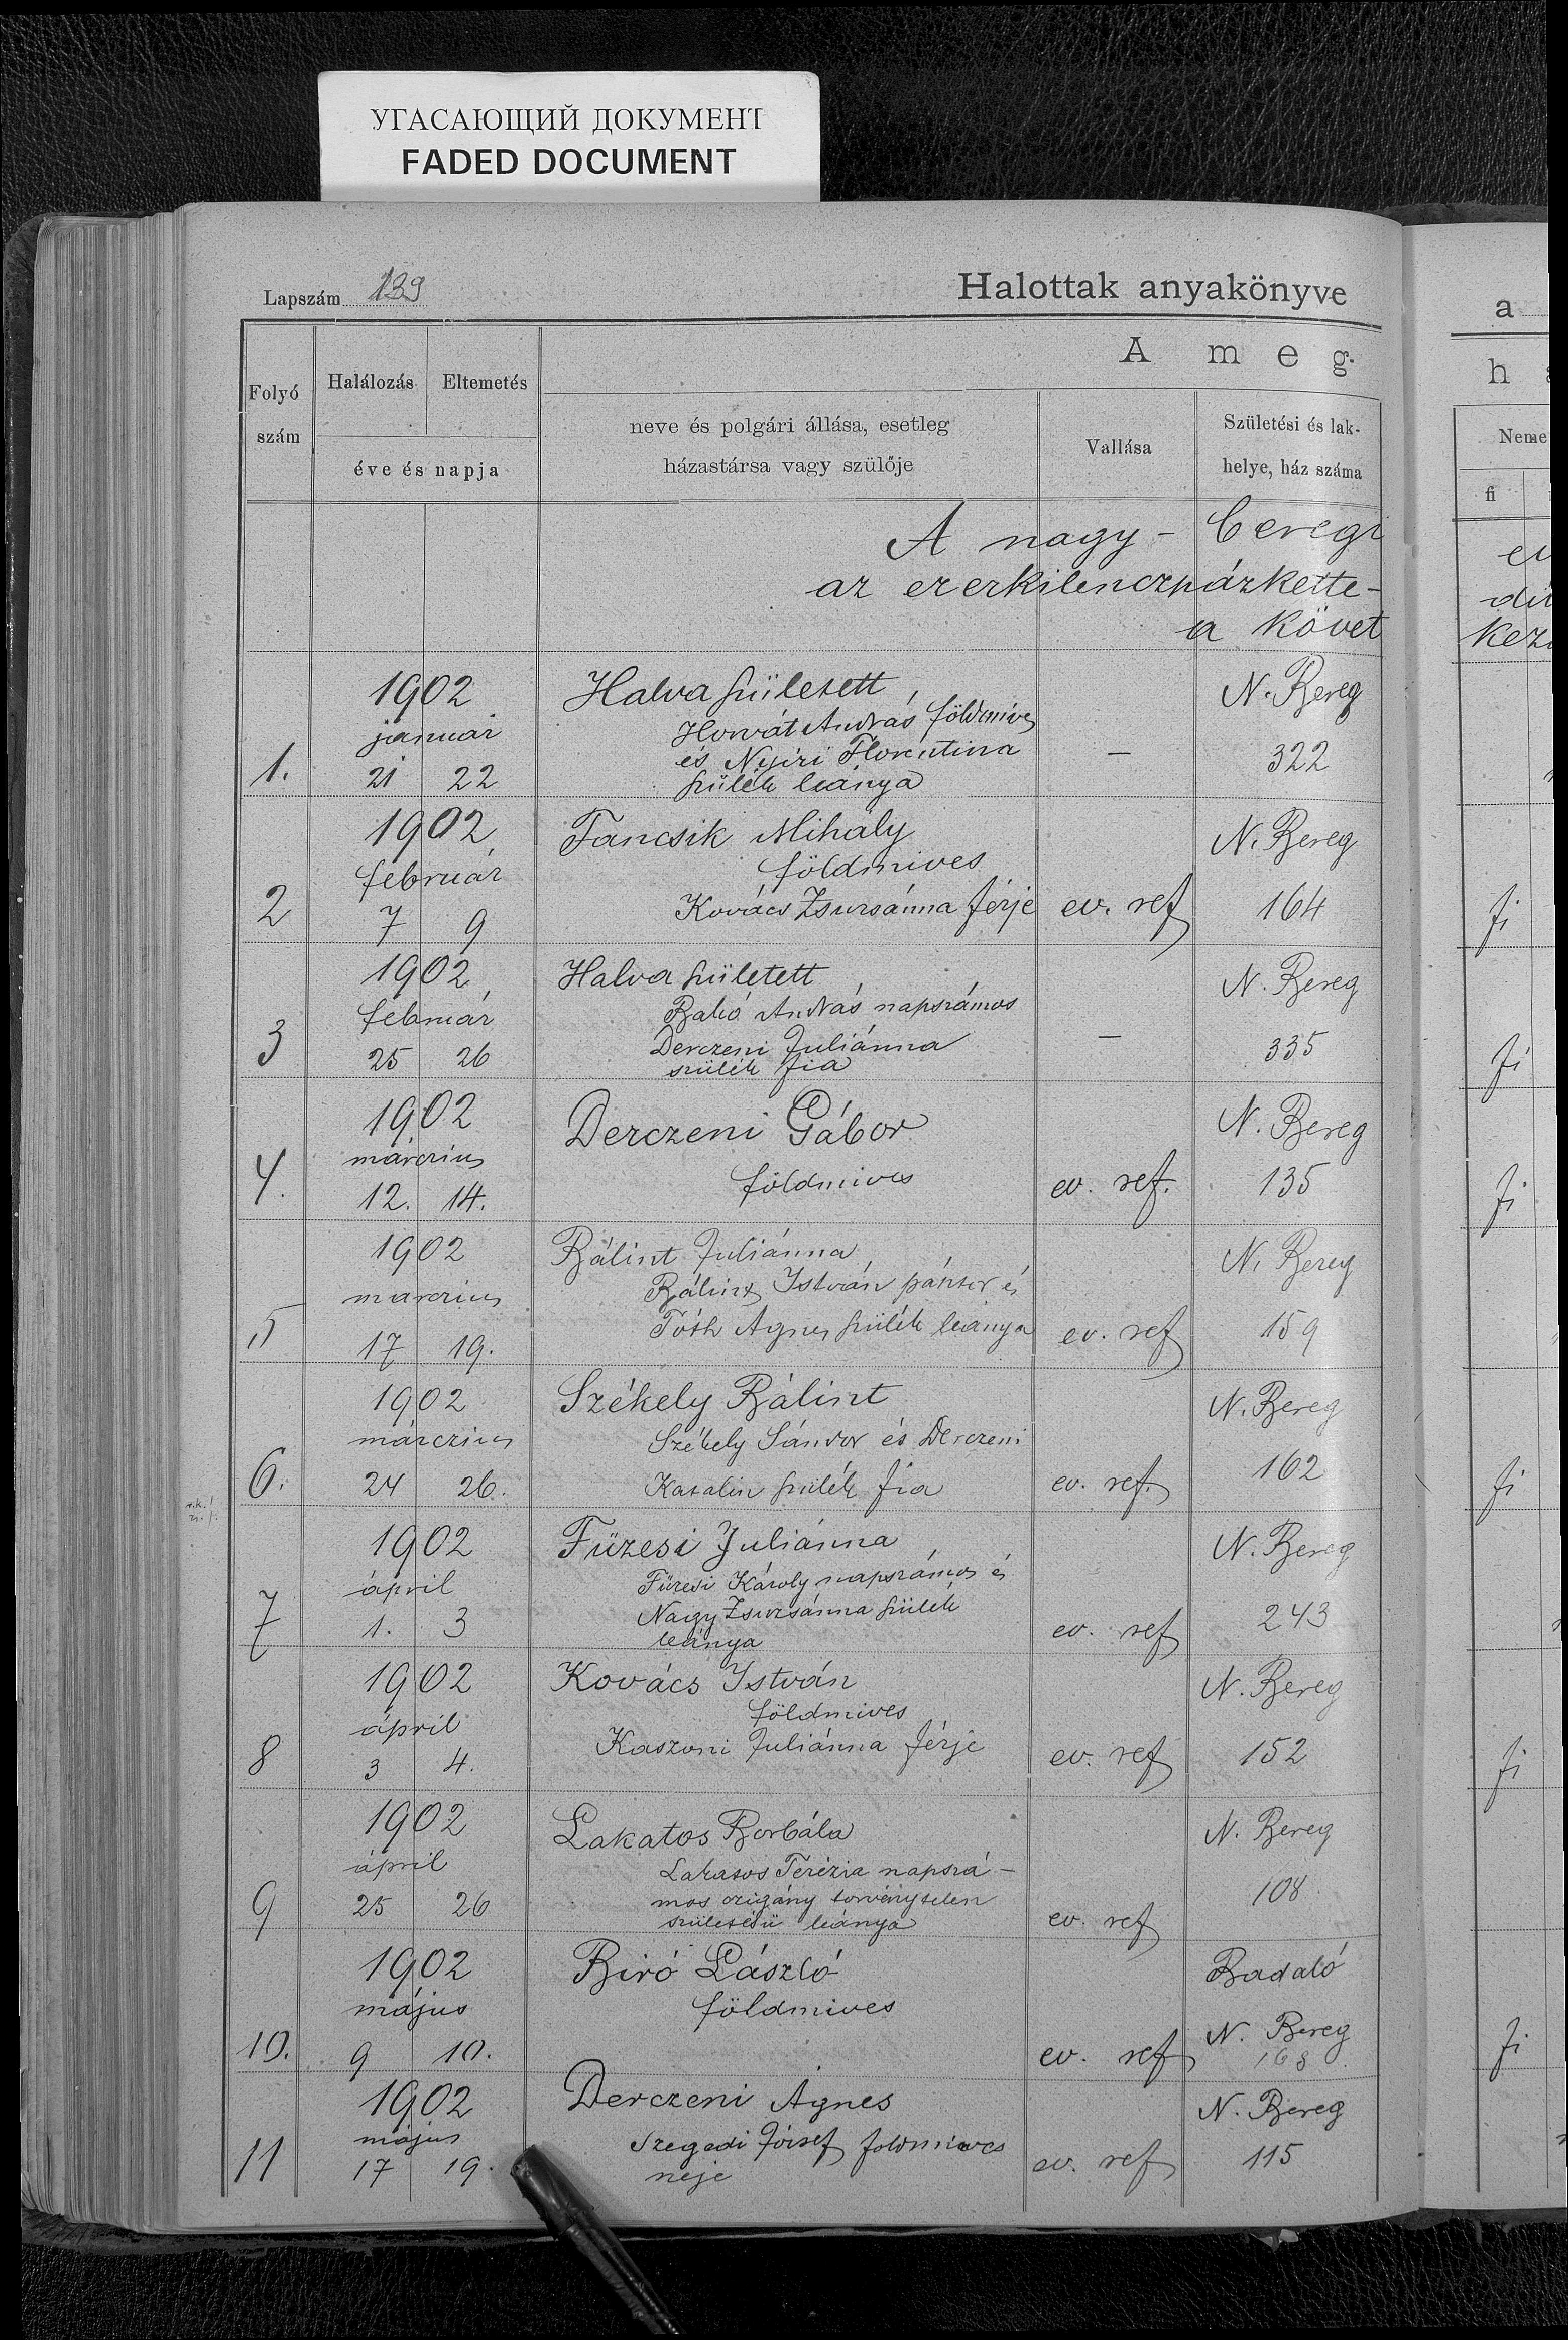 УГАСАЮЩИЙ ДОКУМЕНТ
FADED DOCUMENT
Lapszám 139
Halottak anyakönyve
a
Folyó szám
Halálozás
Eltemetés
éve és napja
A meg-
h
neve és polgári állása, esetleg
házastársa vagy szülője
Vallása
Születési és lak-
helye, ház száma
Neme
fi
A nagy-beregi
az ezerkilenczházkette-
a követ
1.
1902
január
21 22
Halva született
Horvát András földmives
és Nyiri Florentina
szülék leánya
—
N. Bereg
322
2
1902
február
7 9
Tancsik Mihály
földmives
Kovács Zsuzsánna férje
ev. ref
N. Bereg
164
fi
3
1902
február
25 26
Halva született
Bakó András napszámos
Derczeni Juliánna
szülék fia
—
N. Bereg
335
fi
4.
1902
márczius
12. 14.
Derczeni Gábor
földmives
ev. ref.
N. Bereg
135
fi
5
1902
marczius
17 19.
Bálint Juliánna
Bálint István pásztor és
Tóth Agnes szülék leánya
ev. ref
N. Bereg
159
6.
1902
márczius
24 26.
Székely Bálint
Székely Sándor és Derczeni
Katalin szülék fia
ev. ref.
N. Bereg
162
fi
7
1902
ápril
1. 3
Füzesi Juliánna
Füzesi Károly napszámos és
Nagy Zsuzsánna szülék
leánya
ev. ref
N. Bereg
243
8
1902
ápril
3 4.
Kovács István
földmives
Kaszoni Juliánna férje
ev. ref
N. Bereg
152
fi
9
1902
ápril
25 26
Lakatos Borbála
Lakatos Terézia napszá-
mos czigány törvénytelen
születésü leánya
ev. ref
N. Bereg
108
10.
1902
május
9 10.
Biró László
földmives
ev. ref
Badaló
N. Bereg
168
fi
11
1902
május
17 19.
Derczeni Agnes
Szegedi József földmives
neje
ev. ref
N. Bereg
115